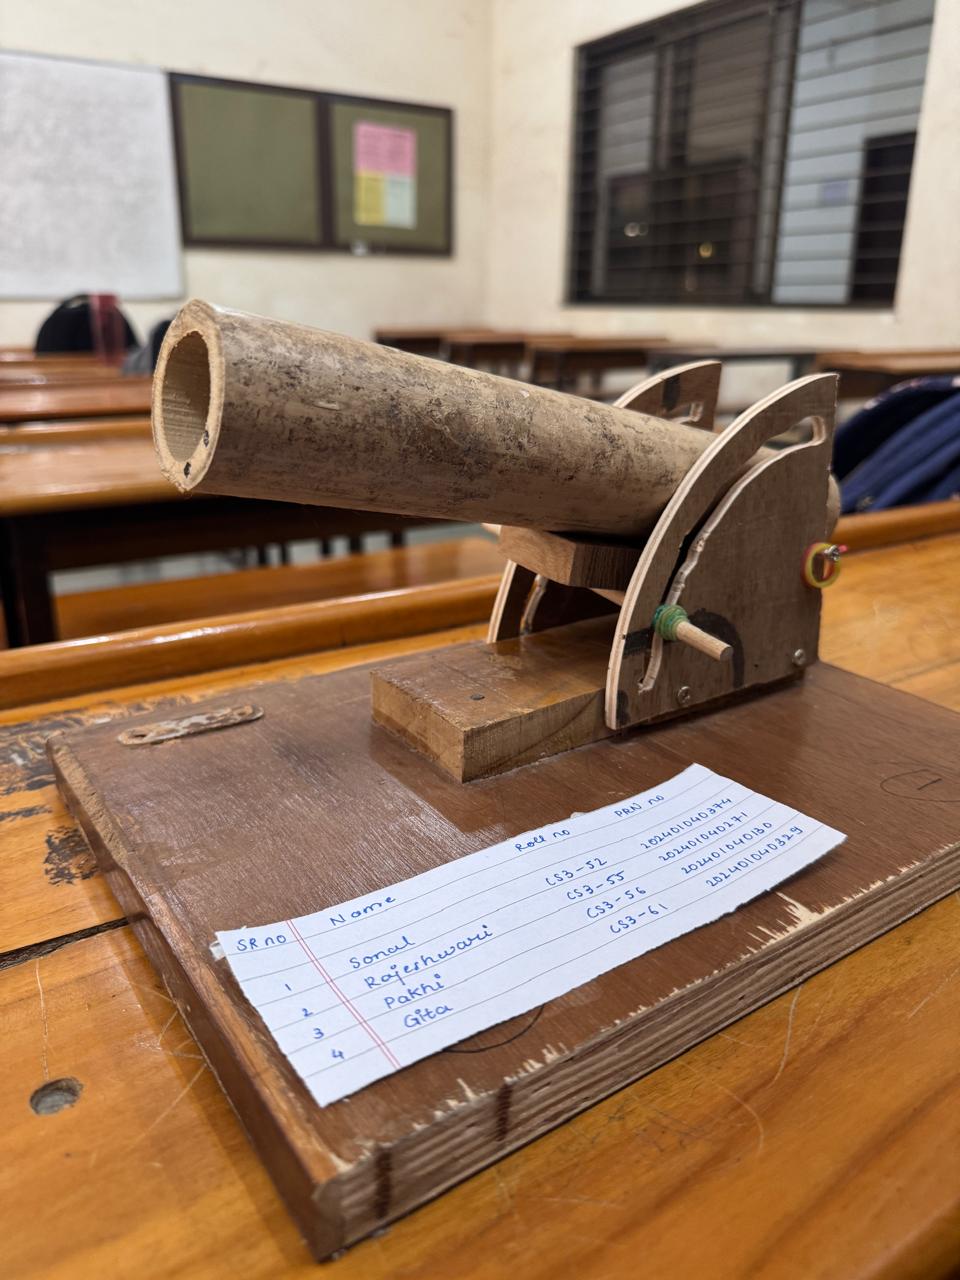 SR no Name Roll no PRN no
1 Sonal CS3-52 202401040374
2 Rajeshwari CS3-55 202401040271
3 Pakhi CS3-56 202401040130
4 Gita CS3-61 202401040329